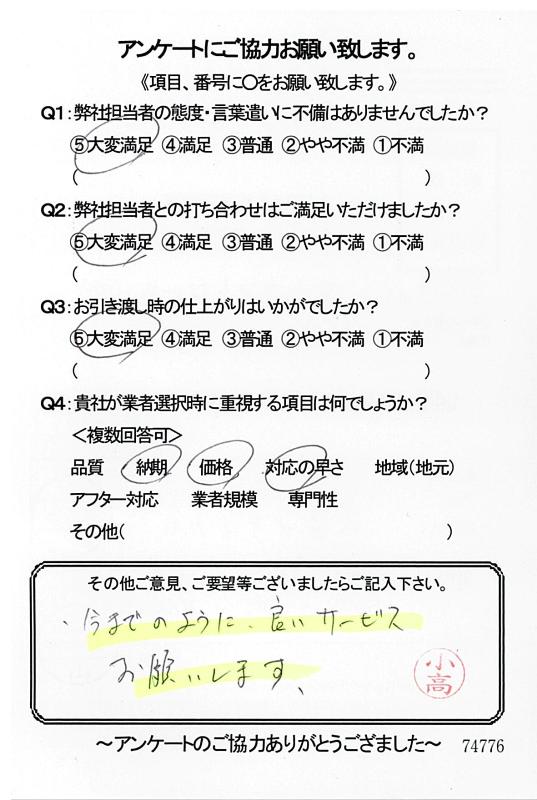 アンケートにご協力お願い致します。
《項目、番号に〇をお願い致します。》
Q1:弊社担当者の態度・言葉遣いに不備はありませんでしたか?
⑤大変満足 ④満足 ③普通 ②やや不満 ①不満
( )
Q2:弊社担当者との打ち合わせはご満足いただけましたか?
⑤大変満足 ④満足 ③普通 ②やや不満 ①不満
( )
Q3:お引き渡し時の仕上がりはいかがでしたか?
⑤大変満足 ④満足 ③普通 ②やや不満 ①不満
( )
Q4:貴社が業者選択時に重視する項目は何でしょうか?
<複数回答可>
品質 納期 価格 対応の早さ 地域(地元)
アフター対応 業者規模 専門性
その他( )
その他ご意見、ご要望等ございましたらご記入下さい。
・今までのように、良いサービス
お願いします、
小高
～アンケートのご協力ありがとうござました～ 74776